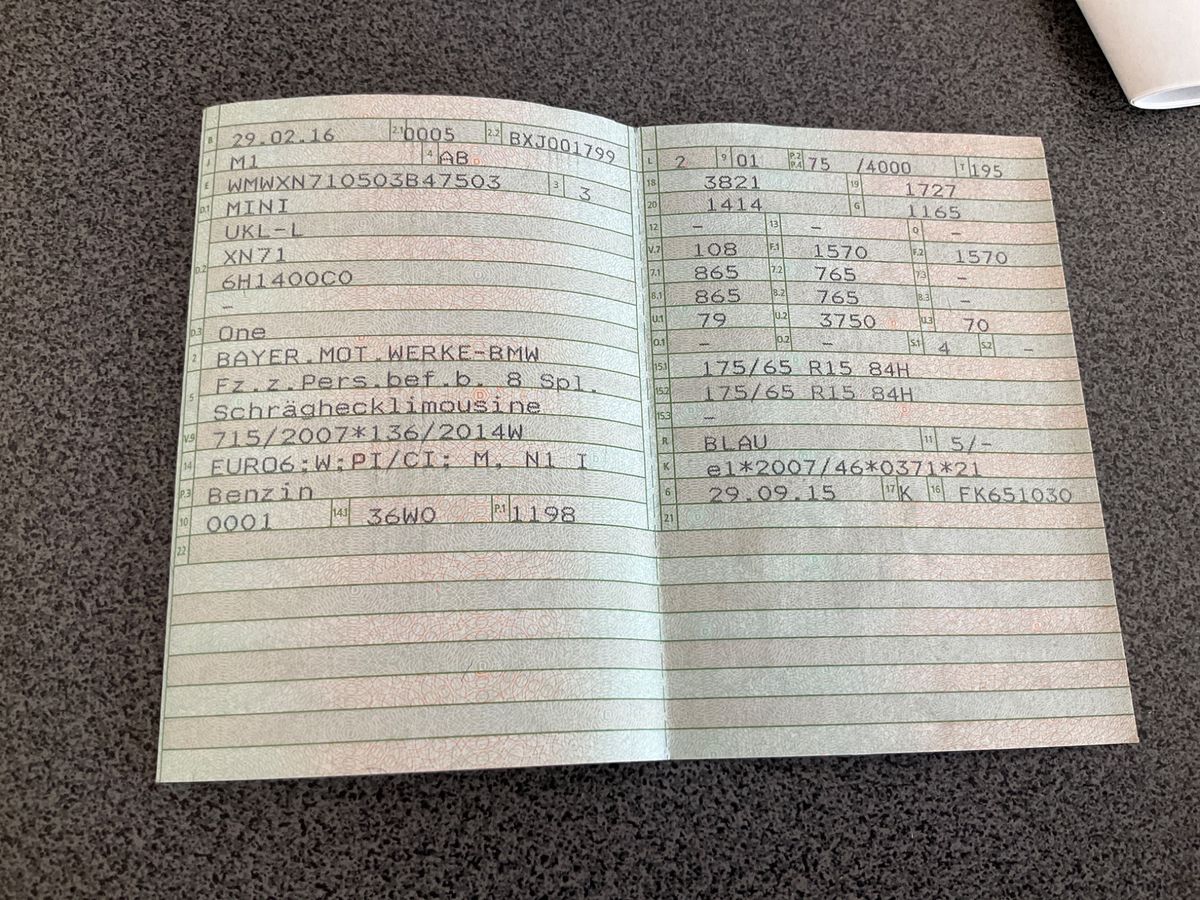 B 29.02.16 2.1 0005 2.2 BXJ001799
J M1 4 AB
E WMWXN710503B47503 3 3
D.1 MINI
UKL-L
D.2 XN71
6H1400C0
-
D.3 One
2 BAYER.MOT.WERKE-BMW
5 Fz.z.Pers.bef.b. 8 Spl.
Schräghecklimousine
V.9 715/2007*136/2014W
14 EURO6;W;PI/CI; M, N1 I
P.3 Benzin
10 0001 14.1 36W0 P.1 1198
22
L 2 9 01 P.2 P.4 75 /4000 T 195
18 3821 19 1727
20 1414 G 1165
12 - 13 - Q -
V.7 108 F.1 1570 F.2 1570
7.1 865 7.2 765 7.3 -
8.1 865 8.2 765 8.3 -
U.1 79 U.2 3750 U.3 70
O.1 - O.2 - S.1 4 S.2 -
15.1 175/65 R15 84H
15.2 175/65 R15 84H
15.3 -
R BLAU 11 5/-
K e1*2007/46*0371*21
6 29.09.15 17 K 16 FK651030
21